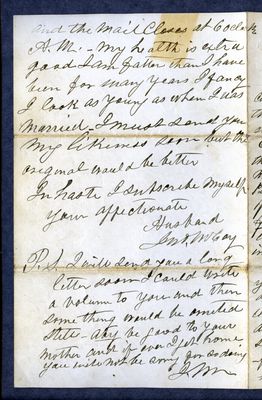 and the Mail Closes at 6 oclock
A.M. - My health is extra
good I am fatter than I have
been for many years I fancy
I look as young as when I was
married - I must send you
my likeness soon but the
original would be better
In haste I subscribe myself
your affectionate
Husband
Jno McCoy
P.S. I will send you a long
litter soon I could write
a volume to you and then
some thing would be omited
still - be good to your
mother and if ever I get home
you will not be sorry for so doing